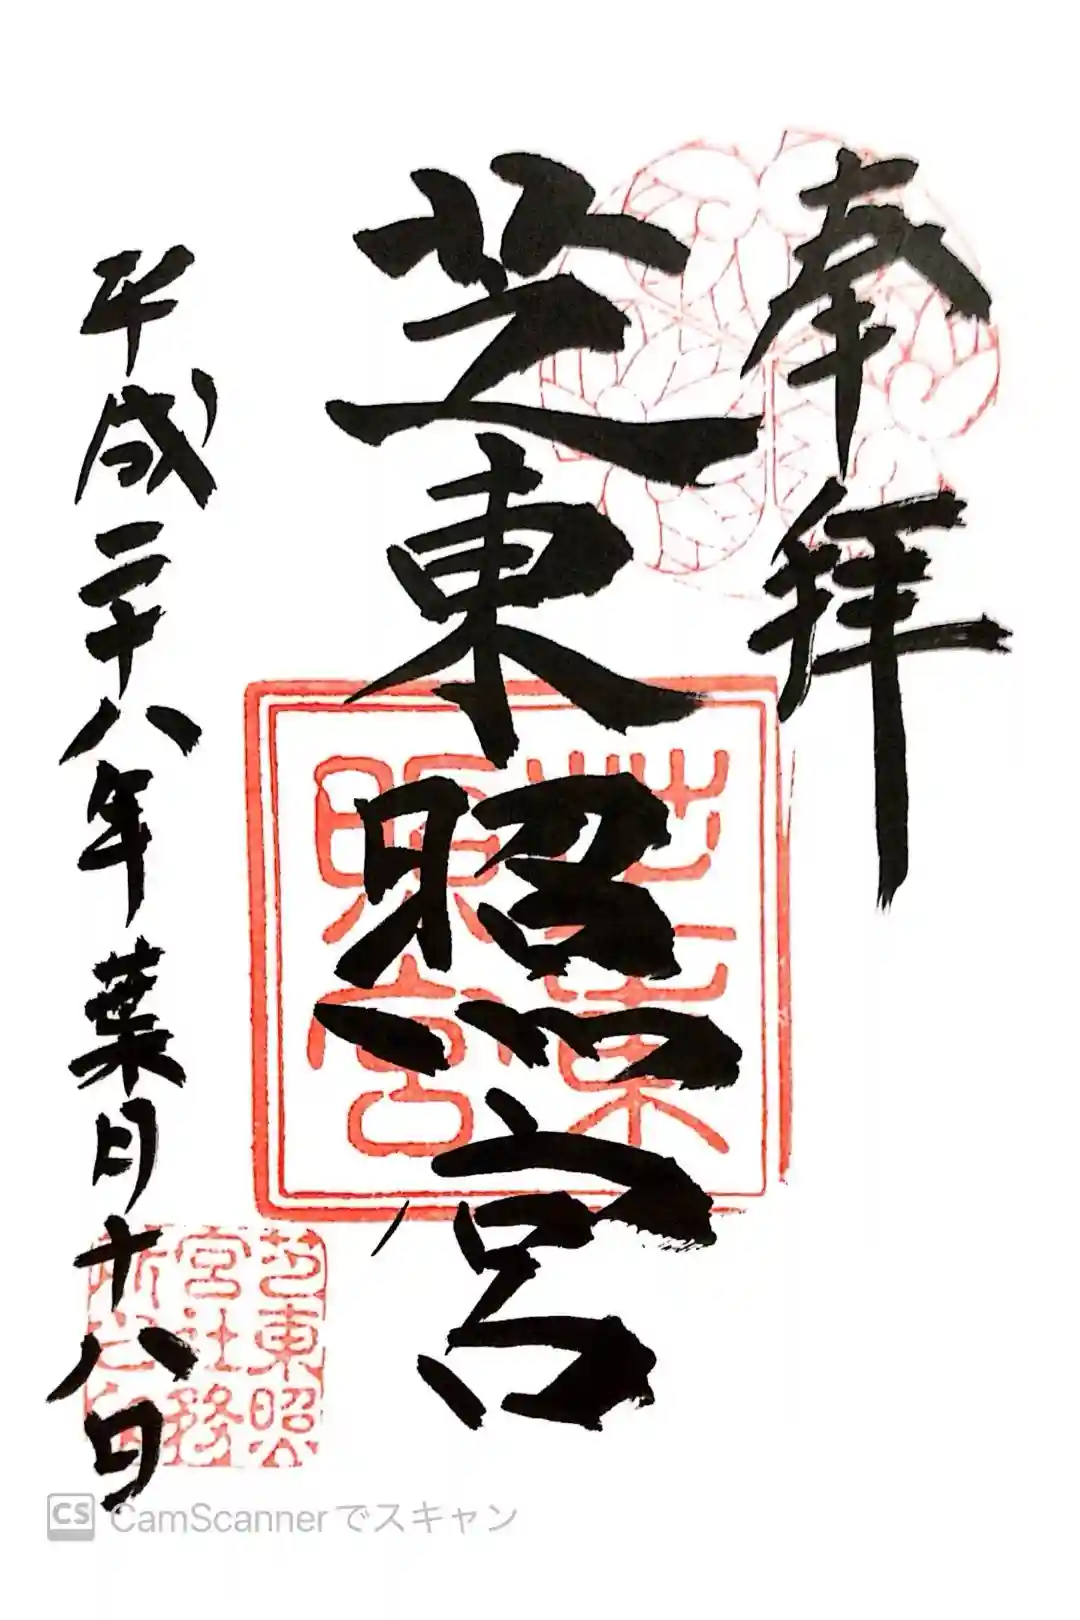 奉拝
芝東照宮
平成二十八年葉月十八日
芝東照宮
芝東照
宮社務
所之印
CS CamScannerでスキャン